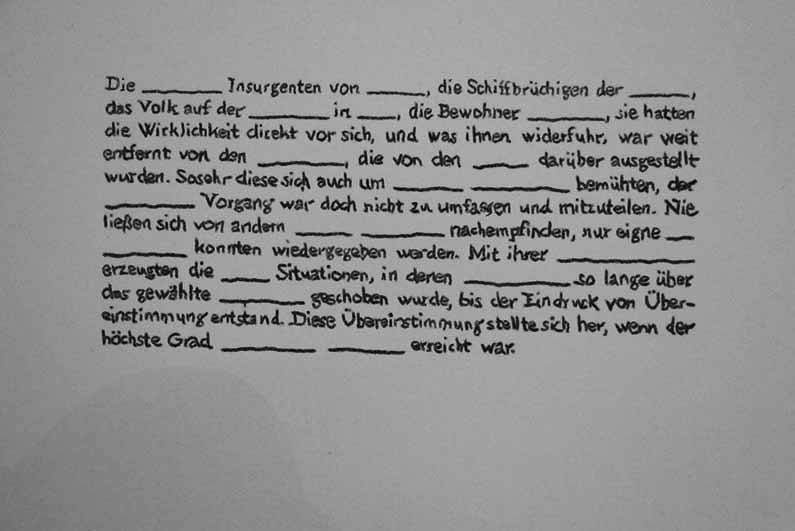 Die ______ Insurgenten von _____, die Schiffbrüchigen der _____,
das Volk auf der ______ in ___, die Bewohner ______, sie hatten
die Wirklichkeit direkt vor sich, und was ihnen widerfuhr, war weit
entfernt von den _______, die von den ____ darüber ausgestellt
wurden. Sosehr diese sich auch um _____ _______ bemühten, der
_______ Vorgang war doch nicht zu umfassen und mitzuteilen. Nie
ließen sich von andern ____ ______ nachempfinden, nur eigne __
______ konnten wiedergegeben werden. Mit ihrer __________
erzeugten die ____ Situationen, in denen ________ so lange über
das gewählte ______ geschoben wurde, bis der Eindruck von Über-
einstimmung entstand. Diese Übereinstimmung stellte sich her, wenn der
höchste Grad _______ ______ erreicht war.